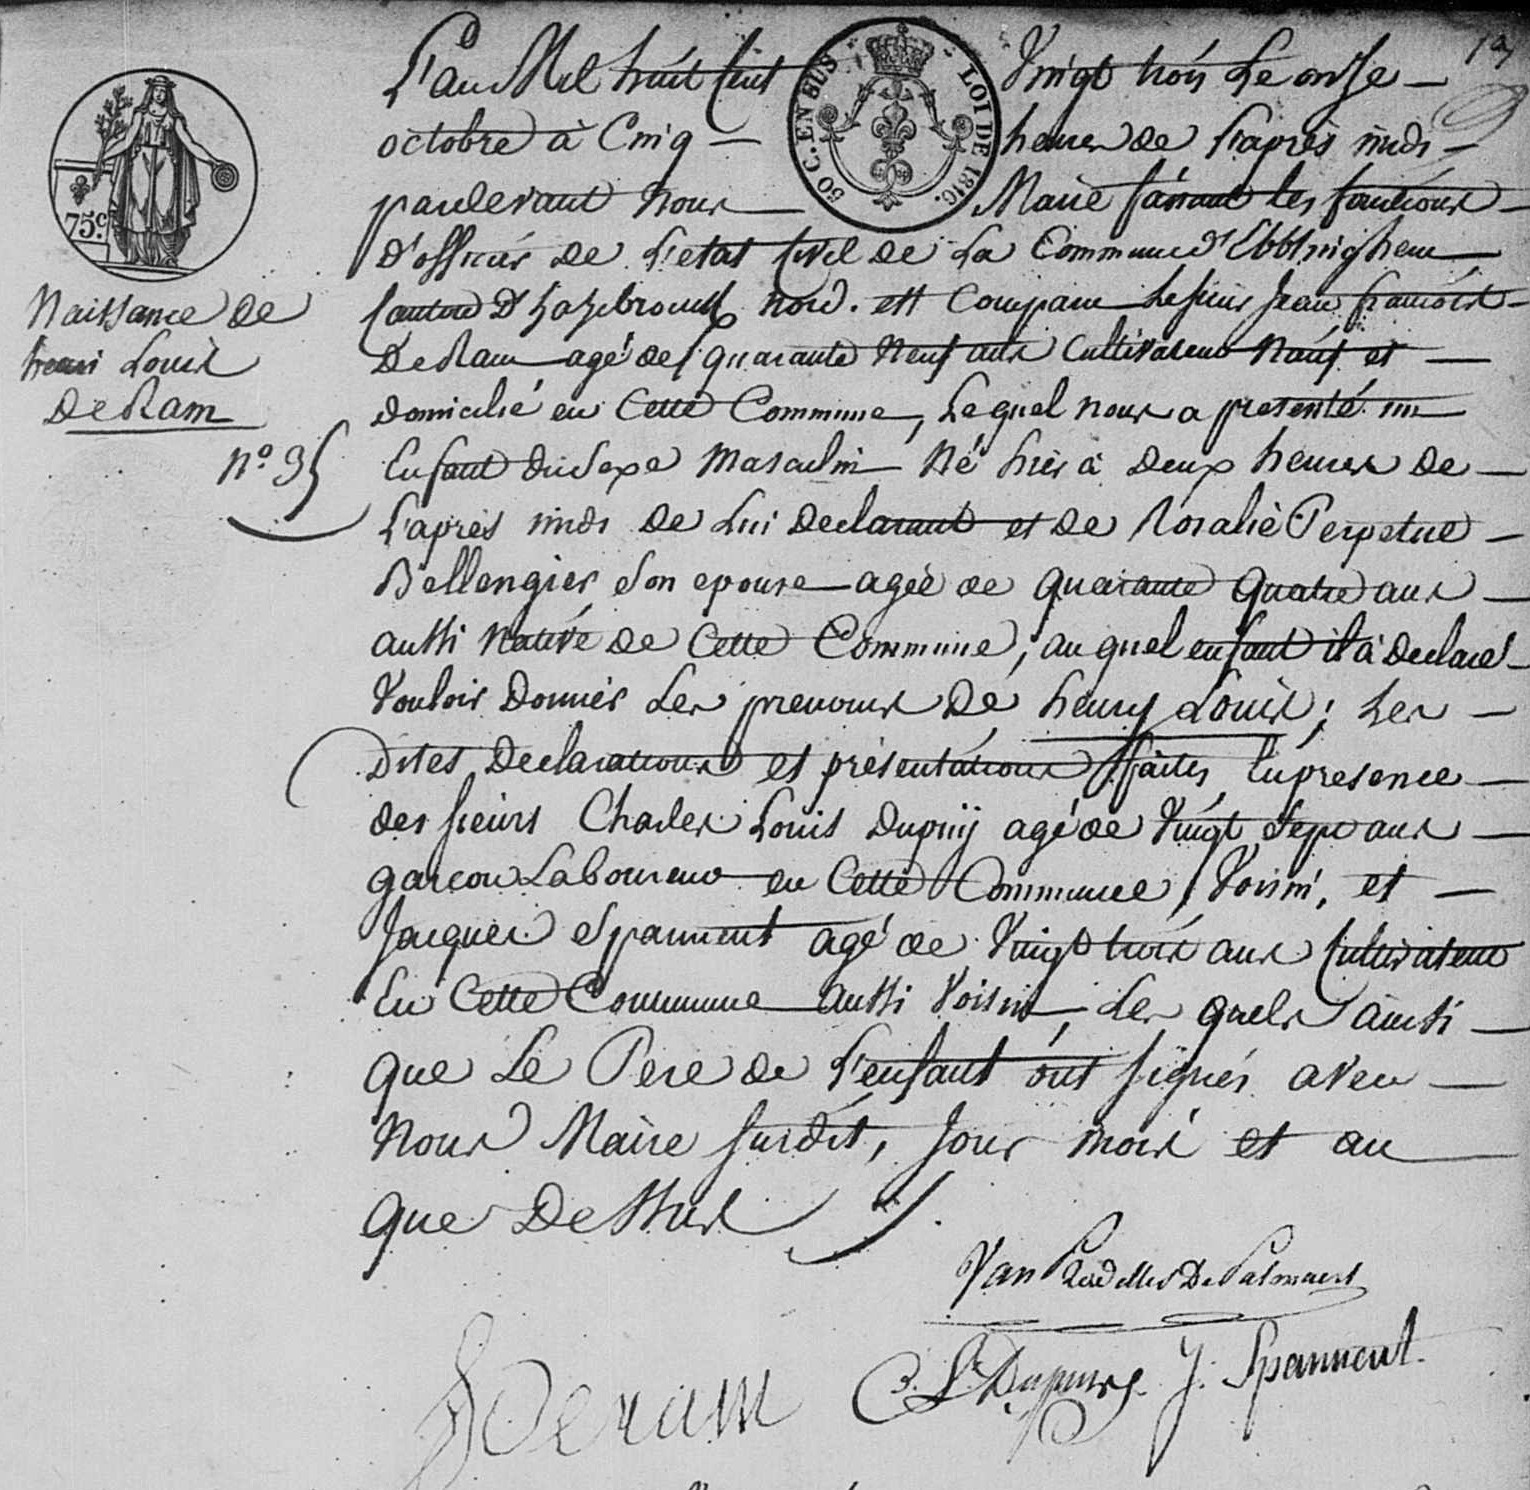 L'an Mil huit Cent Vingt trois Le onze
octobre à Cinq heures de l'après midi
pardevant nous Maire faisant les fonctions
D'officier de L'etat Civil de La Commune d'Ebblinghem
Canton D'hazebrouck nord. est Comparu Le sieur Jean francois
DeRam agé de quarante Neuf ans Cultivateur Natif et
domicilié en Cette Commune, Lequel nous a presenté un
Enfant du Sexe Masculin Né hier à Deux heures de
L'après midi de Lui Declarant et de Rosalie Perpetue
Bellengier Son epouse agée de quarante quatre ans
aussi Native de Cette Commune, au quel enfant il à Declaré
Vouloir Donner Les prenoms De henry Louis; Les
Dites Declarations et présentations faites En presence
des sieurs Charles Louis Dupuij agé de Vingt Sept ans
garcon Laboureur en Cette Commune, Voisin, et
Jacques Spanneut agé de Vingt trois ans Cultivateur
En Cette Commune aussi Voisin, Les quels ainsi
que Le Pere de L'enfant ont signés avec
Nous Maire susdit, Jour mois et an
que Dessus
Naissance de
henri Louis
DeRam
N° 35
75c.
50 C. EN SUS
LOI DE 1816.
Van De Palmaert
C. L. Dupuij J. Spanneut.
Deram